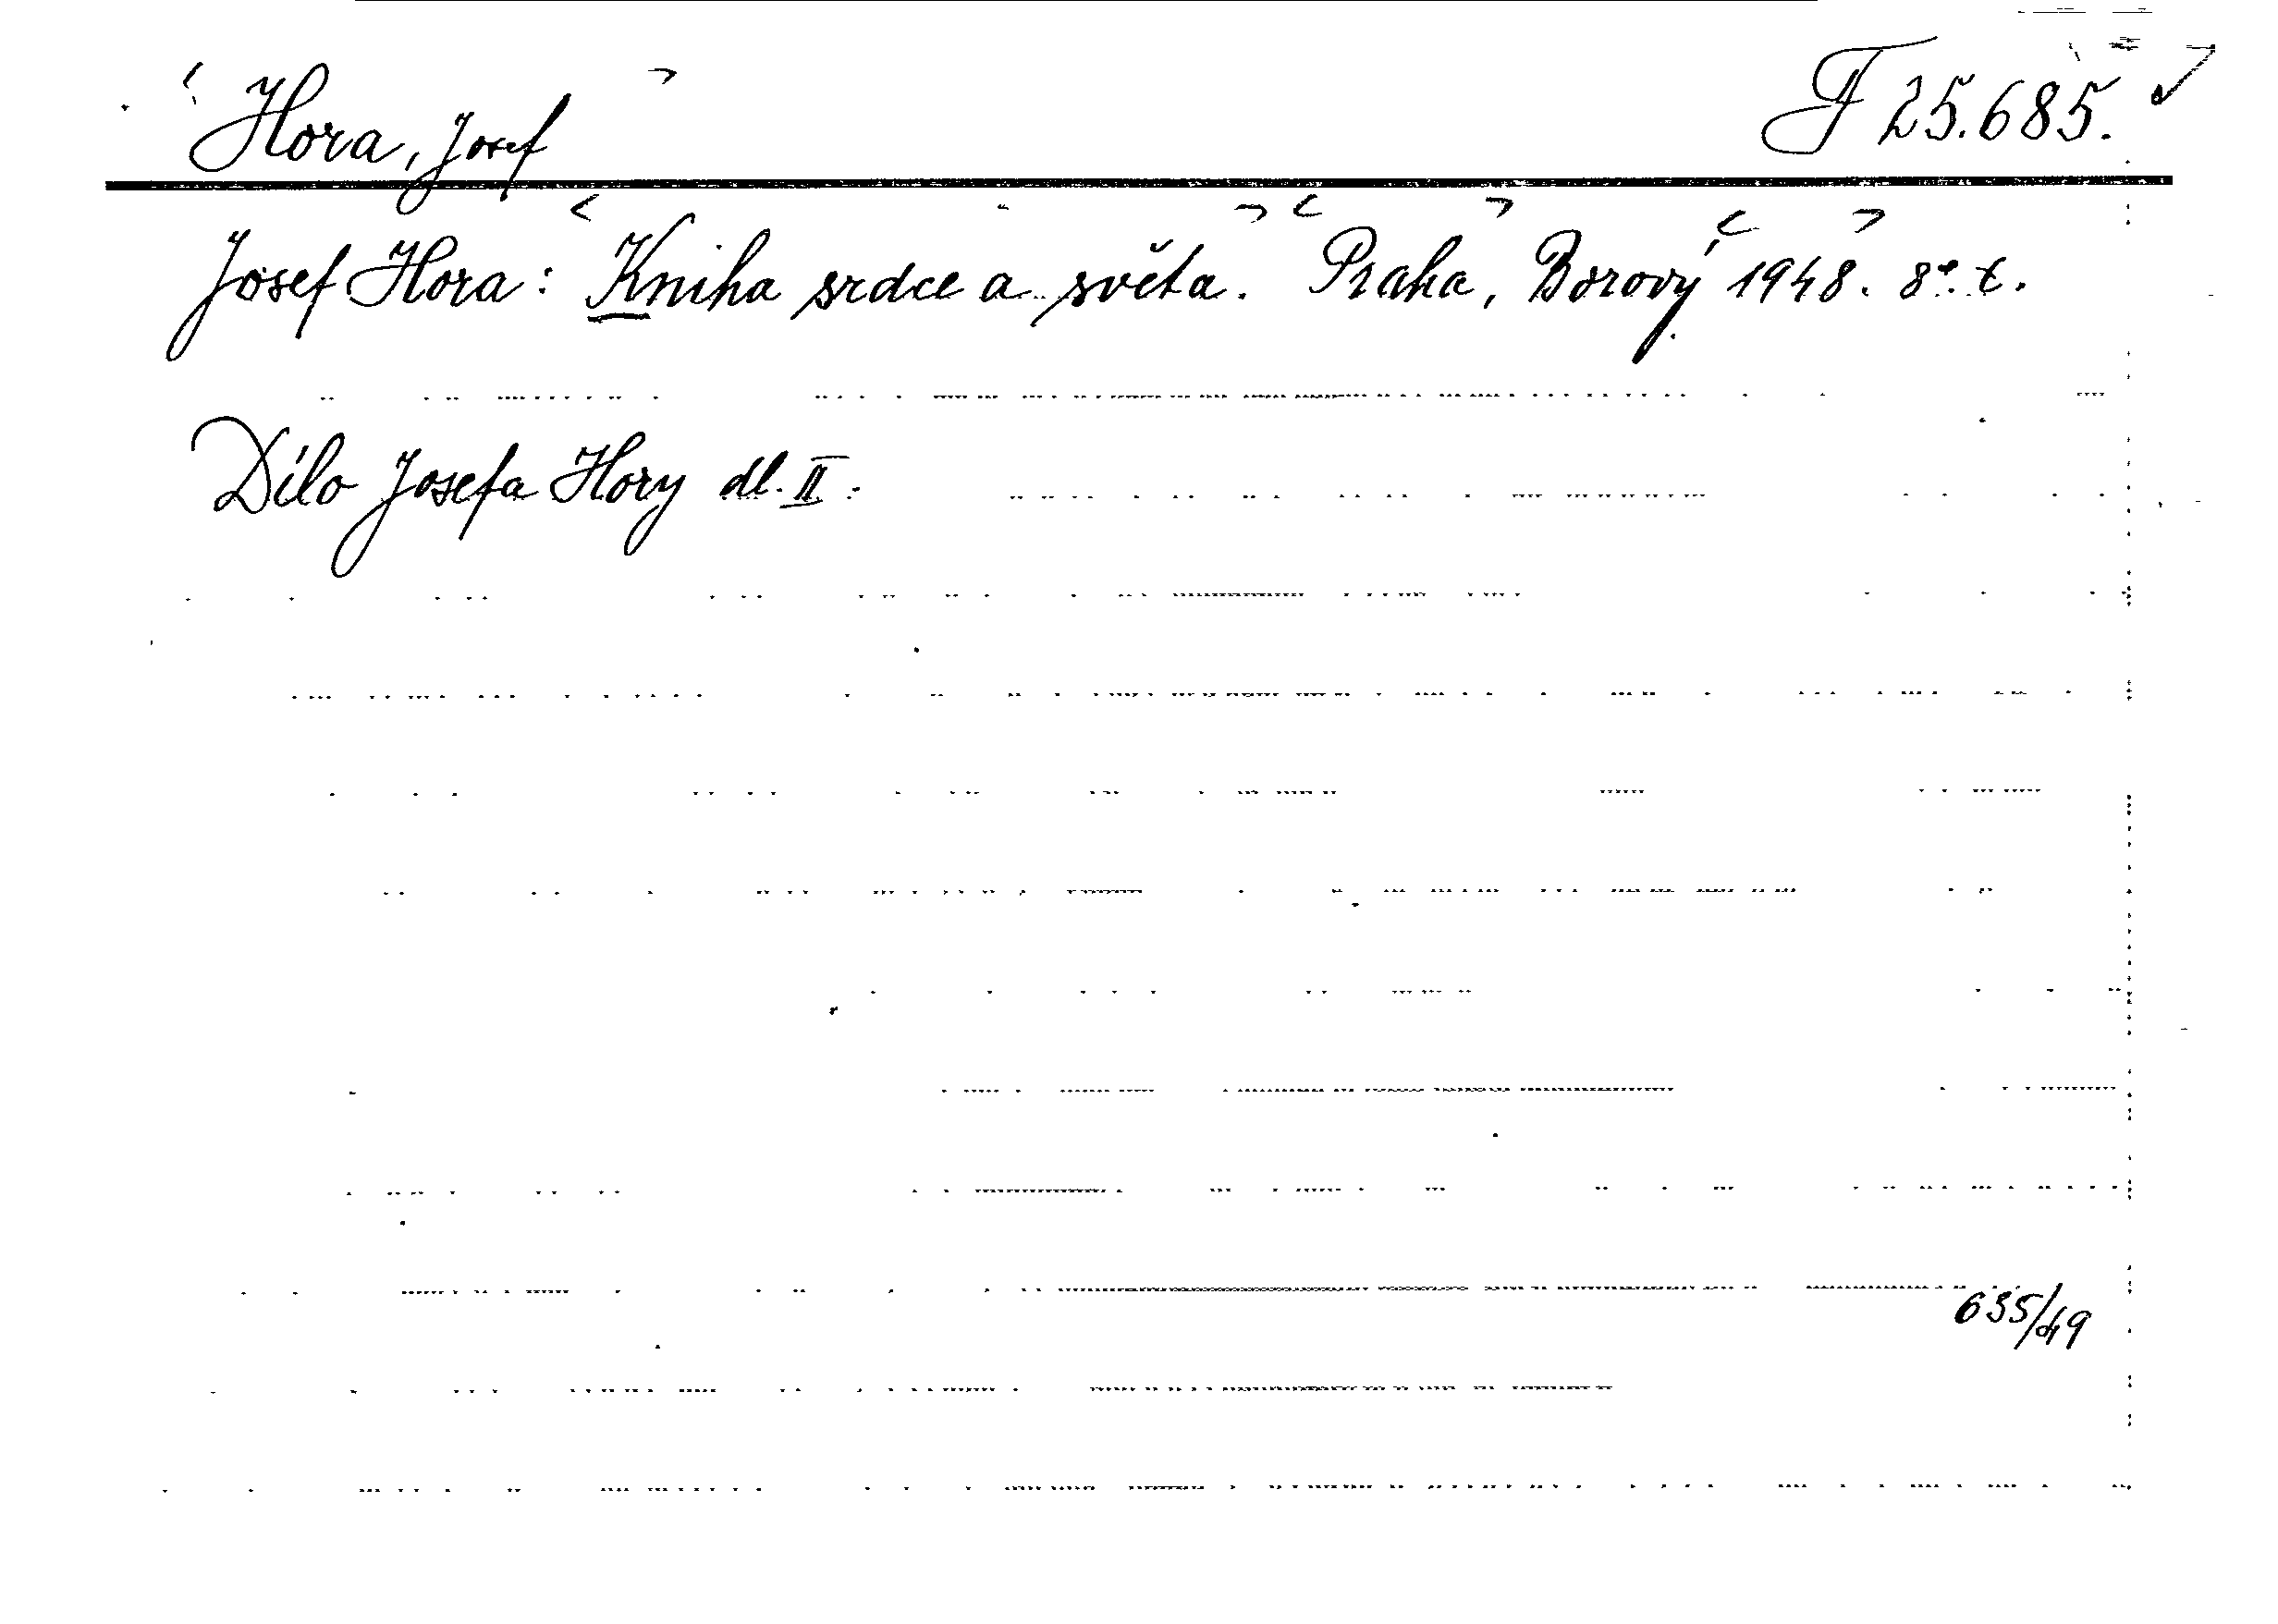 Hora, Josef F 25.685.
Josef Hora: Kniha srdce a světa. Praha, Borový 1948. 8°. t.
Dílo Josefa Hory dl. II.
635/49